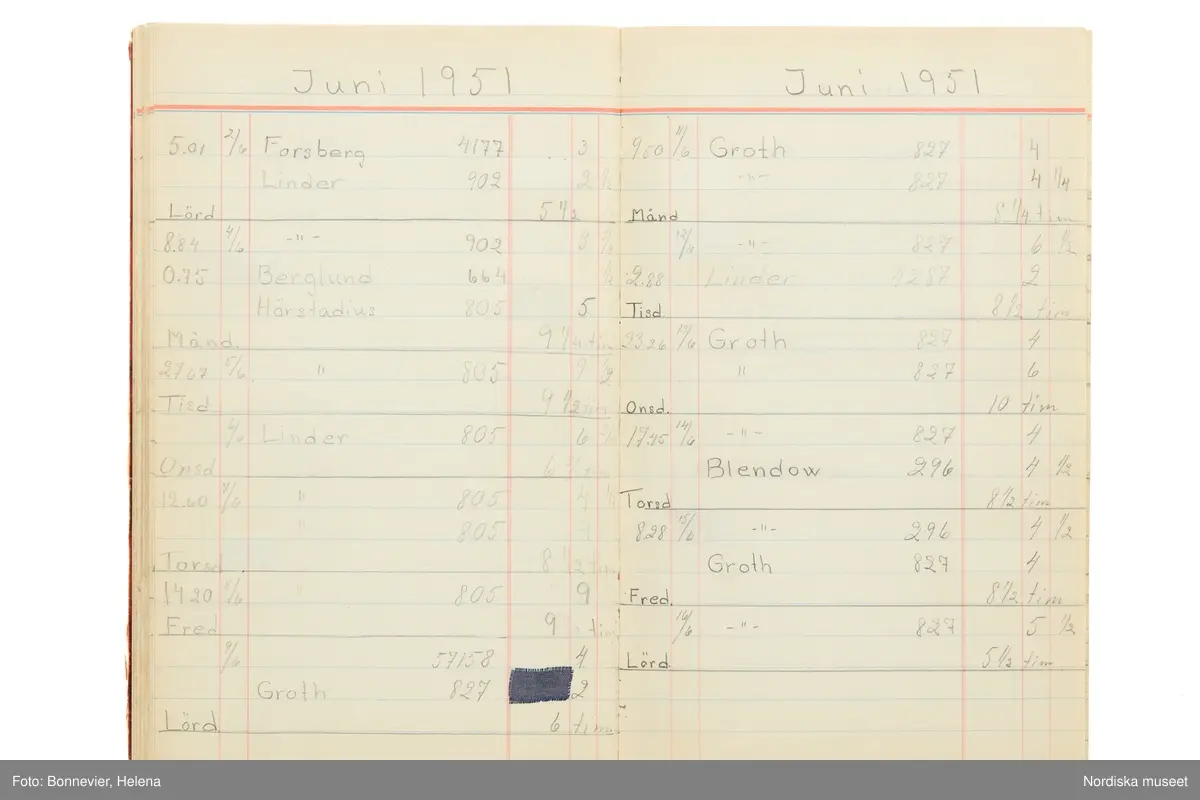 Juni 1951
5.01 2/6 Forsberg 4177 3
Linder 902 2 ½
Lörd 5 ½
8.84 4/6 -"- 902 3 ¾
0.75 Berglund 664 ½
Hörstadius 805 5
Månd. 9 ¼ tim
27.67 5/6 " 805 9 ½
Tisd 9 ½ tim
6/6 Linder 805 6
Onsd 6 tim
12.60 7/6 " 805 4 ½
" 805 4
Torsd 8 ½ tim
14.20 8/6 " 805 9
Fred 9 tim
9/6 57158 4
Groth 827 2
Lörd 6 tim
Juni 1951
9.00 11/6 Groth 827 4
-"- 827 4 ¼
Månd 8 ¼ tim
12/6 -"- 827 6 ½
2.88 Linder 1287 2
Tisd. 8 ½ tim
23.26 13/6 Groth 827 4
" 827 6
Onsd. 10 tim
17.45 14/6 -"- 827 4
Blendow 296 4 ½
Torsd 8 ½ tim
8.28 15/6 -"- 296 4 ½
Groth 827 4
Fred. 8 ½ tim
16/6 -"- 827 5 ½
Lörd 5 ½ tim
Foto: Bonnevier, Helena
Nordiska museet